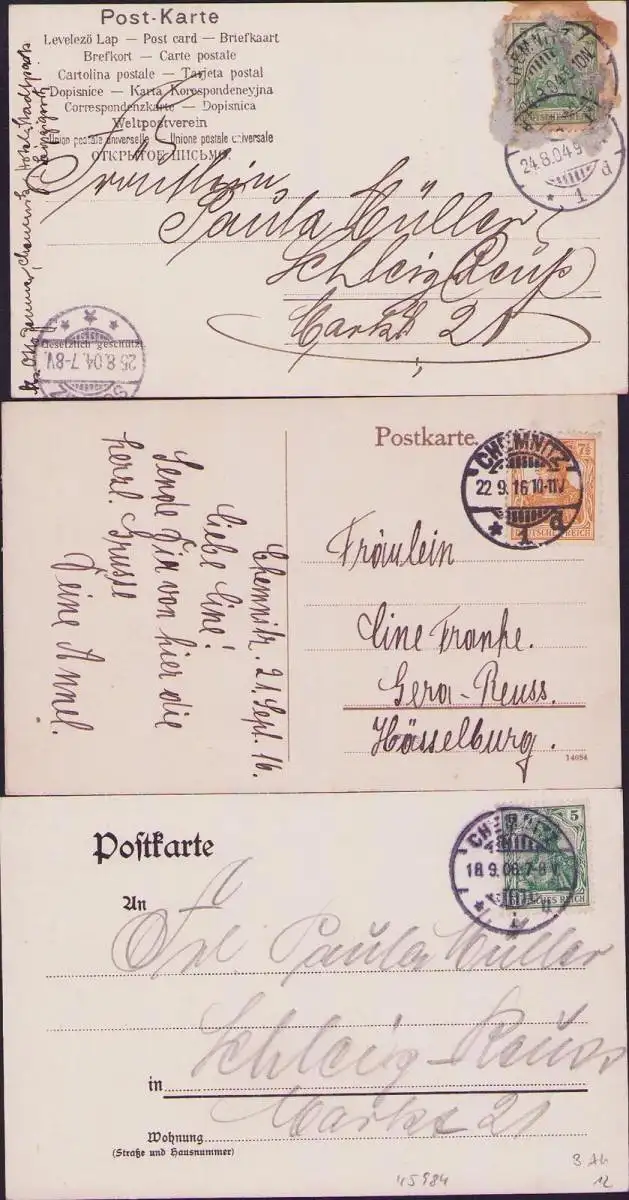 Post-Karte
Levelező Lap — Post card — Briefkaart
Brefkort — Carte postale
Cartolina postale — Tarjeta postal
Dopisnice — Karta Korespondencyjna
Correspondenzkarte — Dopisnica
Weltpostverein
Union postale universelle — Unione postale universale
ОТКРЫТОЕ ПИСЬМО.
CHEMNITZ
24.8.04 9
* 1 d
Fräulein
Paula Müller
Schleiz Reuß
Markt 21
Gesetzlich geschützt
25.8.04.7-8V.
Postkarte.
CHEMNITZ
22.9.16 10-11V
* 1 d
7½
DEUTSCHES REICH
Chemnitz. 21. Sept. 16.
Liebe Line!
Sende Dir von hier die
herzl. Grüsse
Deine Annel.
Fräulein
Line Franke.
Gera-Reuss.
Hässelburg.
14084
Postkarte
CHEMNITZ
18.9.06.7-8V
5
DEUTSCHES REICH
An
Frl Paula Müller
Schleiz-Reuss
in
Markt 21
Wohnung
(Straße und Hausnummer)
45984
12